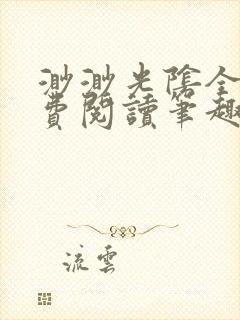 渺渺光陰全
費閱讀筆趣
流雲